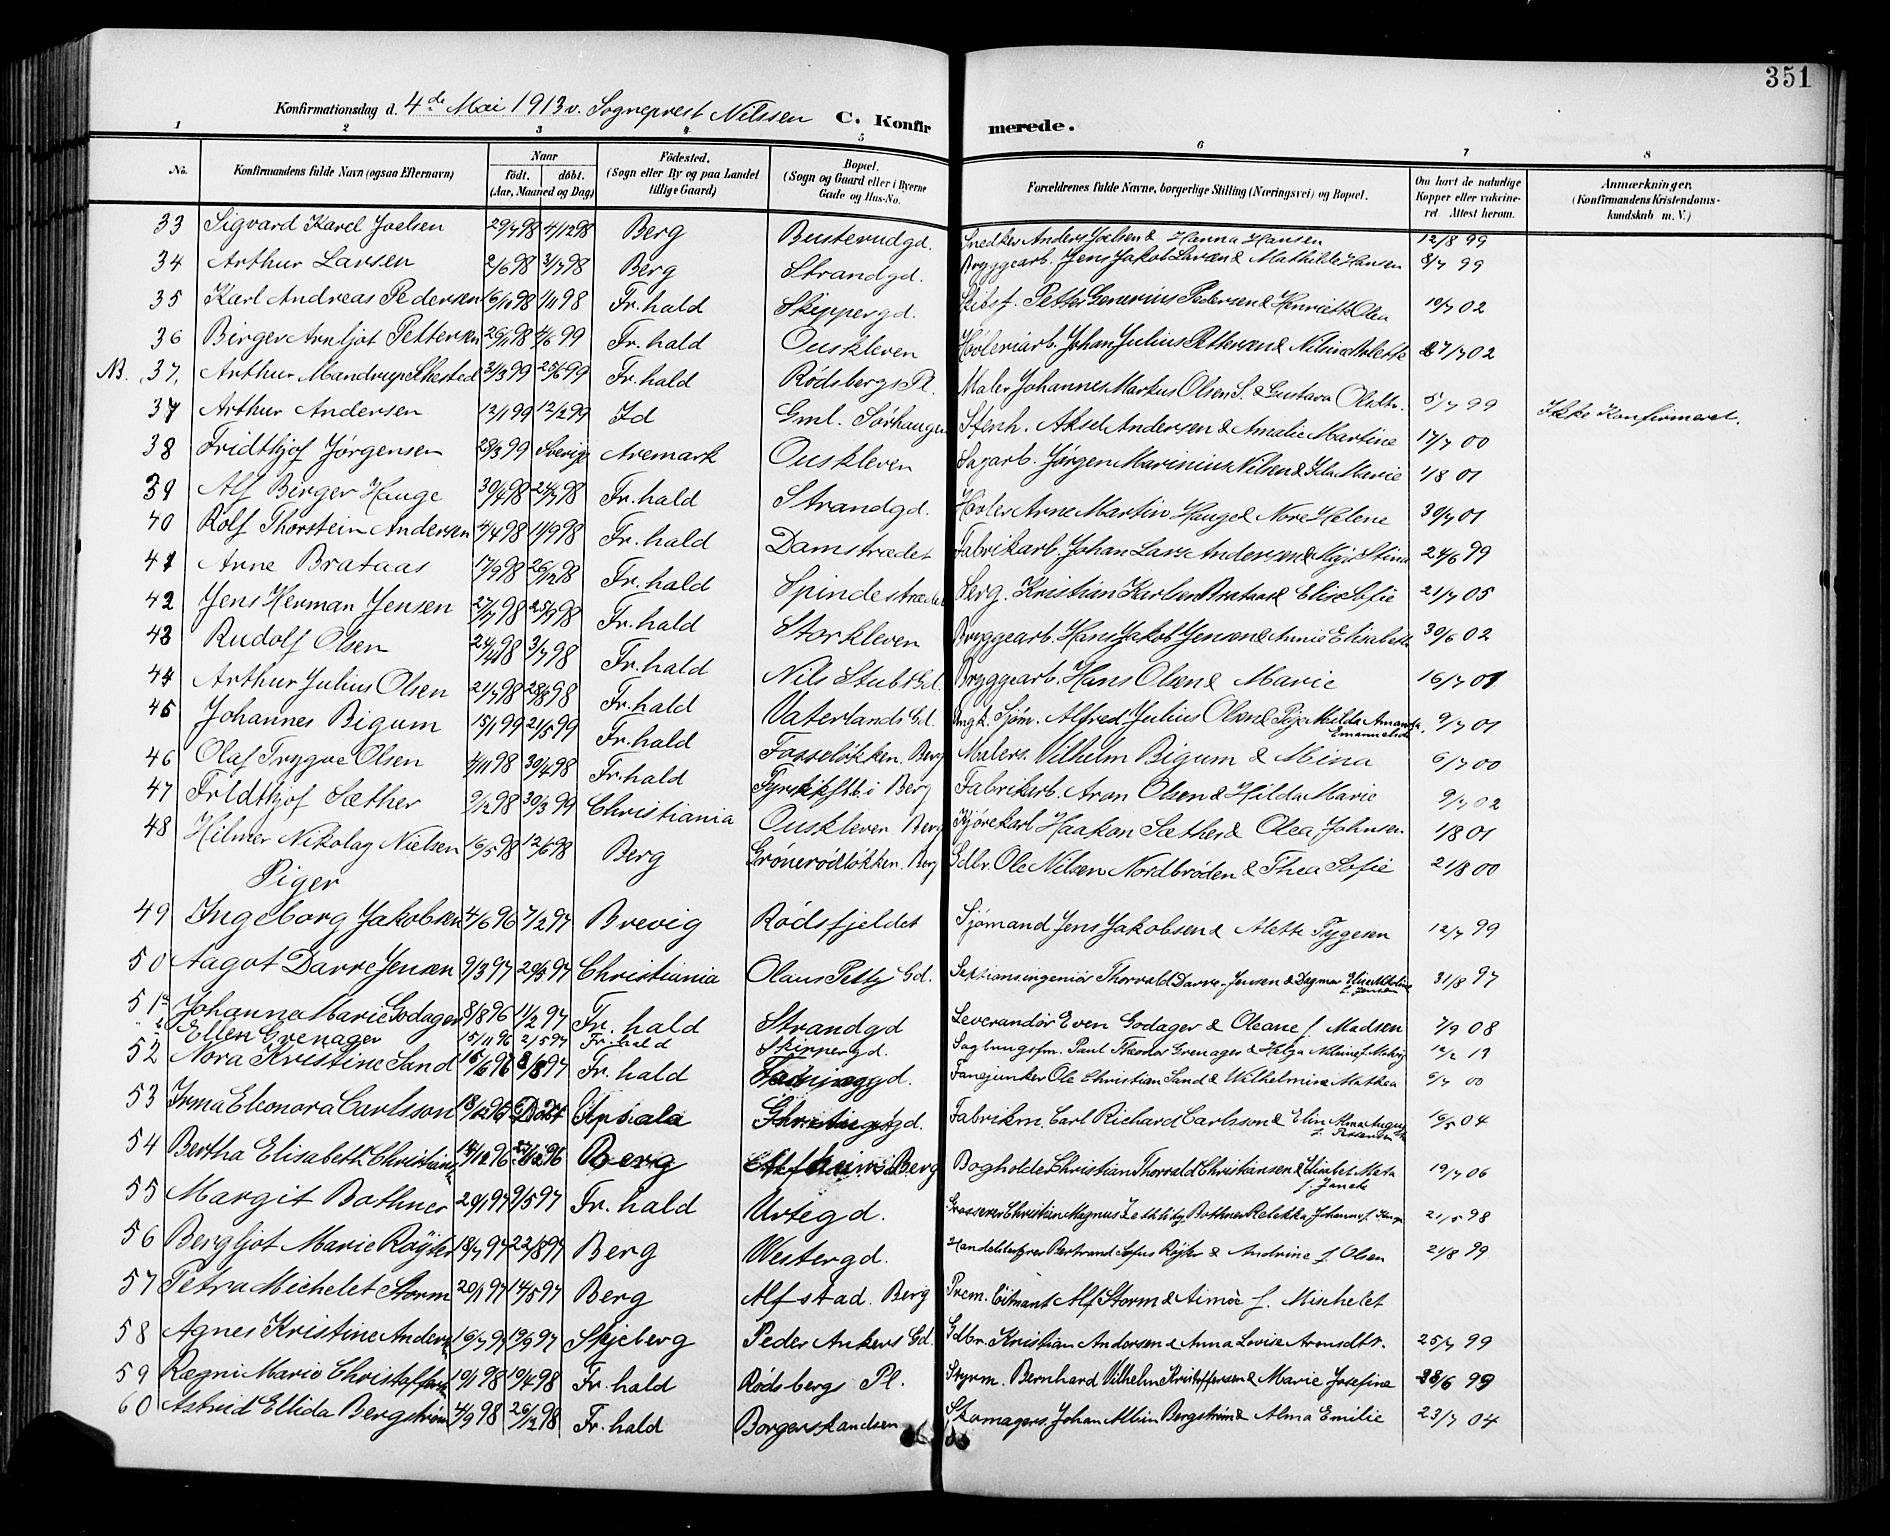 351
Konfirmationsdag d. 4de Mai 1913 v. Sogneprest Nilssen C. Konfirmerede.
1 2 3 4 5 6 7 8
No. Konfirmandens fulde Navn (ogsaa Efternavn) Naar födt. döbt. (Aar, Maaned og Dag) Födested. (Sogn eller By og paa Landet tillige Gaard) Bopæl. (Sogn og Gaard eller i Byerne Gade og Hus-No. Forældrenes fulde Navne, borgerlige Stilling (Næringsvei) og Bopæl. Om havt de naturlige Kopper eller vakcineret. Attest herom. Anmærkninger. (Konfirmandens Kristendomskundskab m. V.)
33 Sigvard Karel Joelsen 29/7 98 4/12 98 Berg Busterudgd. Snedker Anders Joelsen & Hanna Hansen 12/8 99
34 Arthur Larsen 2/6 98 3/7 98 Berg Strandgd. Bryggearb. Jens Jakob Larsen & Mathilde Hansen 8/7 99
35 Karl Andreas Pedersen 16/10 98 1/11 98 Fr.hald Skippergd. Skibsf. Petter Generius Pedersen & Henriette Olea 19/7 02
36 Birger Arnljot Pettersen 26/11 98 4/6 99 Fr.hald Ouskleven Høvleriarb. Johan Julius Pettersen & Nilsine Arlette 27/7 02
NB. 37. Arthur Mandrup Skested 3/3 99 25/6 99 Fr.hald Rødsbergs Pl. Maler Johannes Markus Olsen S. & Gustava Olsdtr. 5/7 99 Ikke Konfirmeret.
37 Arthur Andersen 12/1 99 12/2 99 Id Gml. Sørhaugen Stenh. Aksel Andersen & Amalie Martine 17/7 00
38 Fridthjof Jørgensen 28/3 99 Sverige Aremark Ouskleven Sagarb. Jørgen Marinius Nilsen & Ida Marie 1/8 01
39 Alf Birger Hauge 30/4 98 24/7 98 Fr.hald Strandgd. Høvler Arne Martin Hauge & Nore Helene 30/7 01
40 Rolf Thorstein Andersen 4/4 98 11/9 98 Fr.hald Damstrædet Fabrikarb. Johan Lars Andersen & Stina 24/6 99
41 Arne Brataas 17/9 98 26/12 98 Fr.hald Spindestrædet Serg. Kristian Karlsen Brataas & Elise Sofie 21/7 05
42 Jens Herman Jensen 27/7 98 25/9 98 Fr.hald Storkleven Bryggearb. Hans Jakob Jensen & Annie Elisabeth 30/6 02
43 Rudolf Olsen 24/4 98 3/7 98 Fr.hald Nils Stubs Gd. Bryggearb. Hans Olsen & Marie 16/7 01
44 Arthur Julius Olsen 21/7 98 28/8 98 Fr.hald Vaterlands Gd. Sjøm. Alfred Julius Olsen & Milda Amanda Emanuelsd. 9/7 01
45 Johannes Bigum 15/1 99 21/5 99 Fr.hald Fosseløkken. Berg Malers. Vilhelm Bigum & Mina 6/7 00
46 Olaf Trygve Olsen 4/11 98 30/4 98 Fr.hald i Berg Fabrikarb. Aron Olsen & Hilda Marie 9/7 02
47 Fridthjof Sæther 9/12 98 30/3 99 Christiania Ouskleven Berg Kjørekarl Haakon Sæther & Olea Johnsen 1/8 01
48 Hilmer Nikolay Nielsen 16/5 98 12/6 98 Berg Grønerødløkken. Berg Gdbr. Ole Nilsen Nordbrøden & Thea Sofie 21/8 00
Piger
49 Ingeborg Jakobsen 4/6 96 7/2 97 Brevig Rødsfjeldet Sjømand Jens Jakobsen & Alette Tygesen 12/7 99
50 Aagot Darre Jensen 9/3 97 20/5 97 Christiania Olaus Petty Gd. Sektionsingeniør Thorvald Darre-Jensen & Dagmar f. Jensen 31/8 97
51a Johanna Marie Godager 8/8 96 1/2 97 Fr. hald Strandgd Leverandør Even Godager & Oleane f. Madsen 7/9 08
" b Ellen Grenager 15/11 96 2/5 97 Fr. hald Skippergd. Sagbrugsfm. Paul Theodor Grenager & Helga f. 12/2 13
52 Nora Kristine Sand 16/6 96 8/8 97 Fr. hald Fanejunker Ole Christian Sand & Wilhelmine Mathea 6/7 00
53 Irma Eleonora Carlsson 18/12 95 Døbt Upsala Fabrikm. Carl Richard Carlsson & Elin Alma 16/5 04
54 Bertha Elisabeth Christiansen 14/11 96 27/12 96 Berg Alfheim i Berg Bogholder Christian Thorvald Christiansen & 19/7 06
55 Margit Bothner 20/1 97 9/5 97 Fr. hald Urtegd. Grosserer Christian Magnus Bothner & Johanne f. 21/5 98
56 Bergljot Marie Røyter 18/7 97 22/8 97 Berg Westergd. Bertrand Sofus Røyter & Andrine f. Olsen 21/8 99
57 Petra Michelet Storm 20/1 97 14/5 97 Berg Alfstad. Berg Prem. Løitnant Alf Storm & Aimée f. Mischelet
58 Agnes Kristine Andersen 16/7 97 19/9 97 Skjeberg Peder Ankers Gd. Gdbr. Kristian Andersen & Anna Lovise Arnsdtr. 25/7 99
59 Ragni Marie Christoffersen 19/1 98 19/4 98 Fr.hald Rødsbergs Pl. Styrm. Bernhard Vilhelm Kristoffersen & Marie Josefine 28/6 99
60 Astrid Ellida Bergstrøm 4/9 98 26/12 98 Fr.hald Borgerskandsen Skomagers. Johan Albin Bergstrøm & Alma Emilie 23/7 04